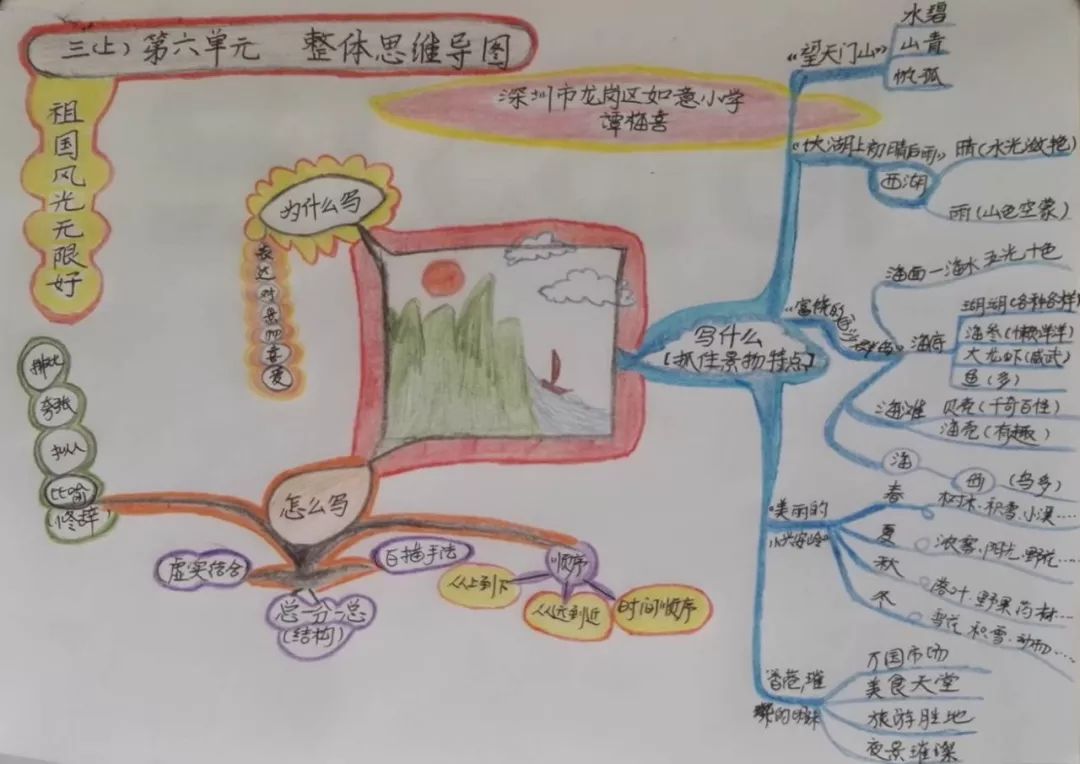 三(上)第六单元 整体思维导图
深圳市龙岗区如意小学
谭梅喜
祖国风光无限好
为什么写
表达对景的喜爱
写什么
【抓住景物特点】
《望天门山》
水碧
山青
帆孤
初晴后雨》
西湖
晴(水光潋艳)
雨(山色空蒙)
《富饶的
海面一海水 五光十色
海底
(各种各样
海参(懒洋洋)
大龙虾(威武)
鱼(多)
海滩
贝壳(千奇百怪)
(有趣)
海
(鸟多)
美丽的
小兴安岭
春
树木.积雪.小溪……
夏
浓雾.阳光.野花…
秋
落叶.野果.药材…
冬
雪花.积雪.
香港,璀
万国市场
美食天堂
旅游胜地
夜景璀璨
怎么写
排比
夸张
拟人
比喻
(修辞)
虚实结合
总一分一总
(结构)
白描手法
顺序
从上到下
从远到近
时间顺序